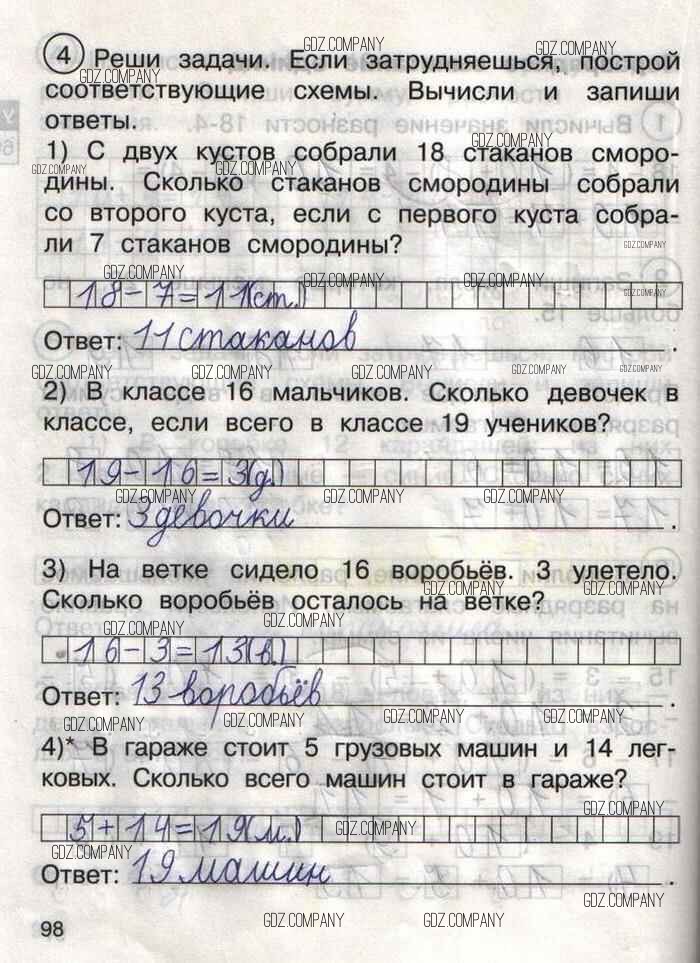 GDZ.COMPANY GDZ.COMPANY
4 Реши задачи. Если затрудняешься, построй
GDZ.COMPANY GDZ.COMPANY
соответствующие схемы. Вычисли и запиши
ответы.
GDZ.COMPANY
1) С двух кустов собрали 18 стаканов сморо-
GDZ.COMPANY GDZ.COMPANY
дины. Сколько стаканов смородины собрали
со второго куста, если с первого куста собра-
ли 7 стаканов смородины?
GDZ.COMPANY
GDZ.COMPANY GDZ.COMPANY GDZ.COMPANY
18-7=11(ст.)
GDZ.COMPANY
Ответ: 11 стаканов.
GDZ.COMPANY GDZ.COMPANY GDZ.COMPANY GDZ.COMPANY
2) В классе 16 мальчиков. Сколько девочек в
классе, если всего в классе 19 учеников?
19-16=3(д.)
GDZ.COMPANY GDZ.COMPANY GDZ.COMPANY
Ответ: 3 девочки.
3) На ветке сидело 16 воробьёв. 3 улетело.
GDZ.COMPANY GDZ.COMPANY
Сколько воробьёв осталось на ветке?
GDZ.COMPANY GDZ.COMPANY GDZ.COMPANY
16-3=13(в.)
Ответ: 13 воробьёв.
GDZ.COMPANY GDZ.COMPANY GDZ.COMPANY GDZ.COMPANY
4)* В гараже стоит 5 грузовых машин и 14 лег-
ковых. Сколько всего машин стоит в гараже?
GDZ.COMPANY
5+14=19(м.)
GDZ.COMPANY
GDZ.COMPANY
Ответ: 19 машин.
GDZ.COMPANY
98
GDZ.COMPANY GDZ.COMPANY